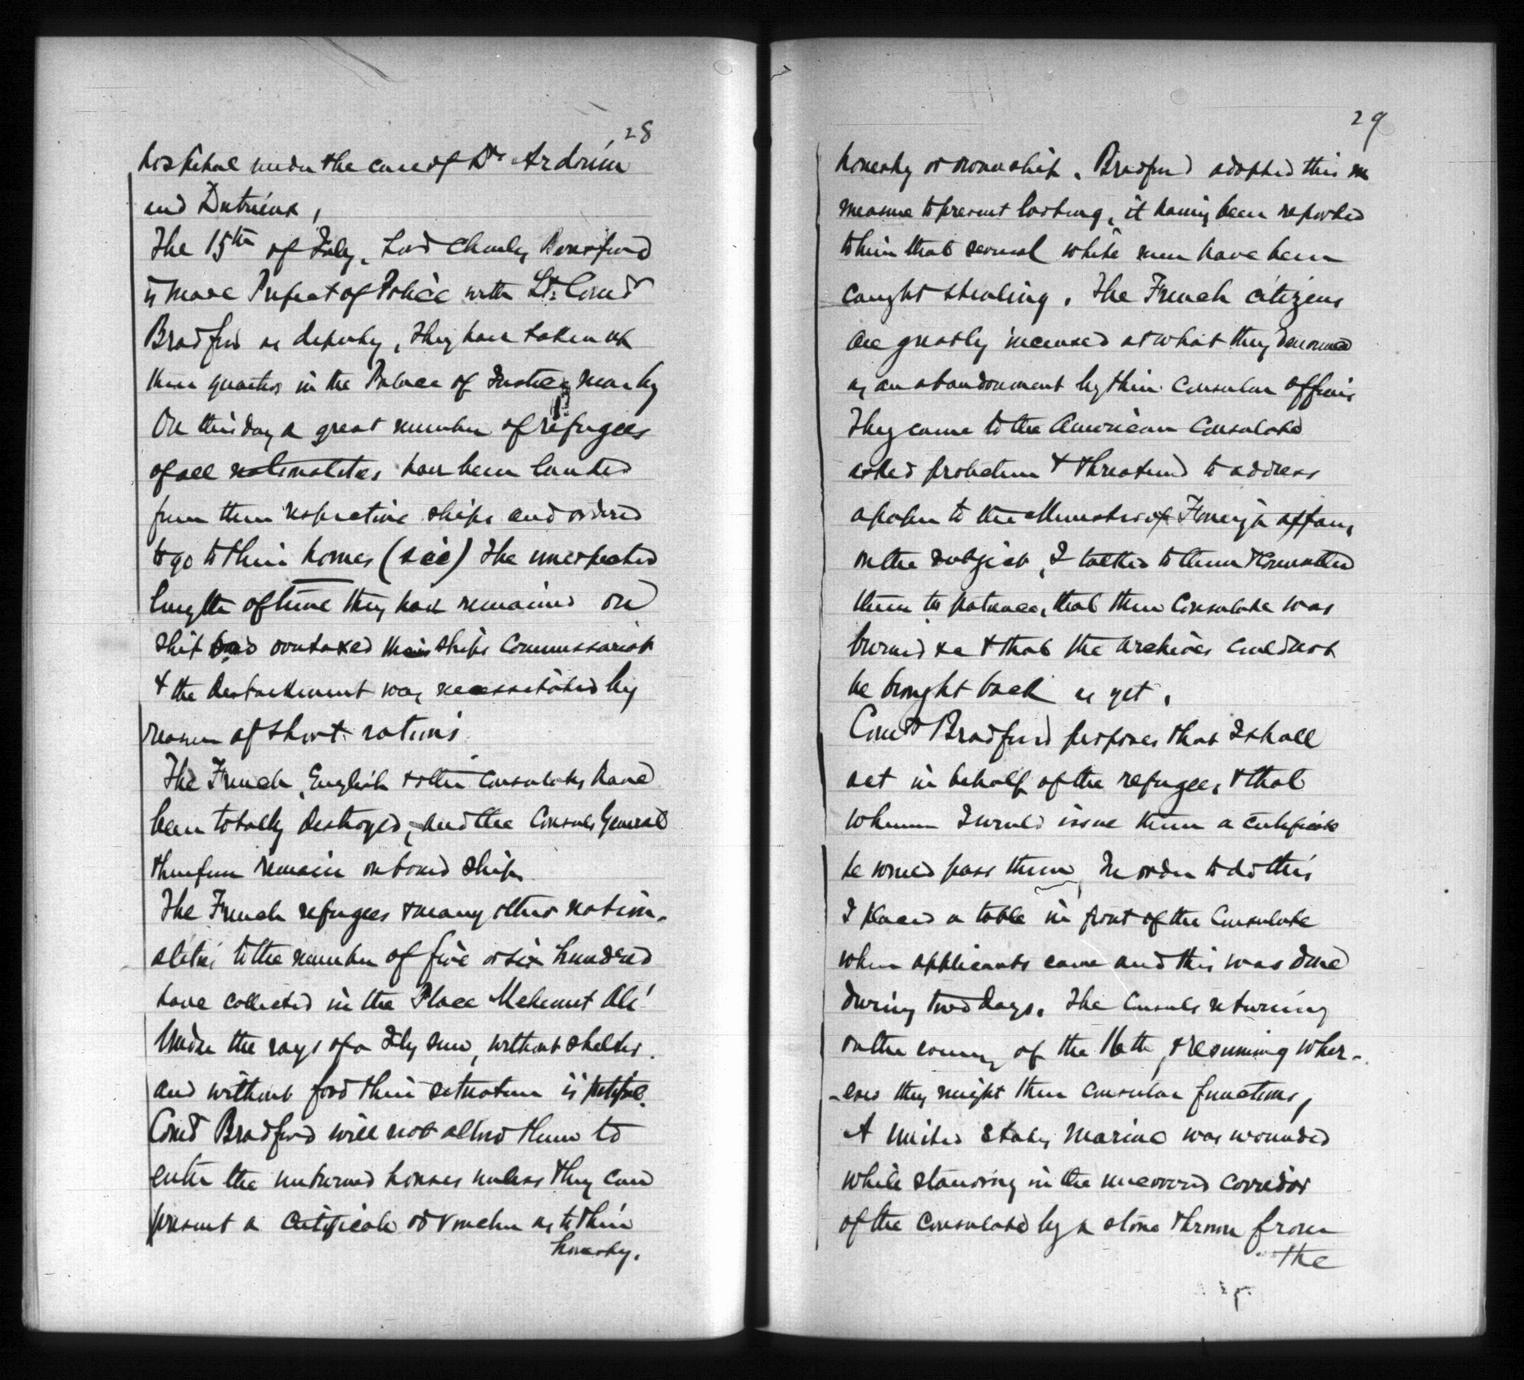 28
hospital under the care of Drs Ardouin
and Dutrieux,
The 15th of July, Lord Charles Beresford
is made Prefect of Police with Lt. Comdr
Bradford as deputy, they have taken up
their quarters in the Palace of Justice, near by
On this day a great number of refugees
of all nationalities have been landed
from their respective ships and ordered
to go to their homes (sic) The unexpected
length of time they had remained on
ship had overtaxed their ships Commissariat
& the disembarkment was necessitated by
reason of short rations
The French, English & other Consulates have
been totally destroyed, and the Consuls General
therefore remain on board ship
The French refugees & many other nation-
alities to the number of five or six hundred
have collected in the Place Mehemet Ali
Under the rays of a July sun, without shelter.
and without food their situation is pitiful.
Comdr Bradford will not allow them to
enter the unburned houses unless they can
present a certificate or voucher as to their
honesty.
29
honesty or ownership. Bradford adopted this
measure to prevent looting, it having been reported
to him that several white men have been
caught stealing. The French citizens
are greatly incensed at what they denounced
as an abandonment by their Consular officers
They came to the American Consulate
asked protection & threatened to address
a paper to the Minister of Foreign affairs
on the subject, I talked to them & counselled
them to patience, that their Consulate was
burned &c & that the archives could not
be brought back as yet.
Comdr Bradford proposes that I shall
act in behalf of the refugees, & that
whom I would issue them a certificate
he would pass them, In order to do this
I placed a table in front of the Consulate
when applicants came and this was done
during two days. The Consuls returning
on the evening of the 16th, & resuming wher-
-ever they might their consular functions,
A United States Marine was wounded
while standing in the uncovered corridor
of the Consulate by a stone thrown from
the